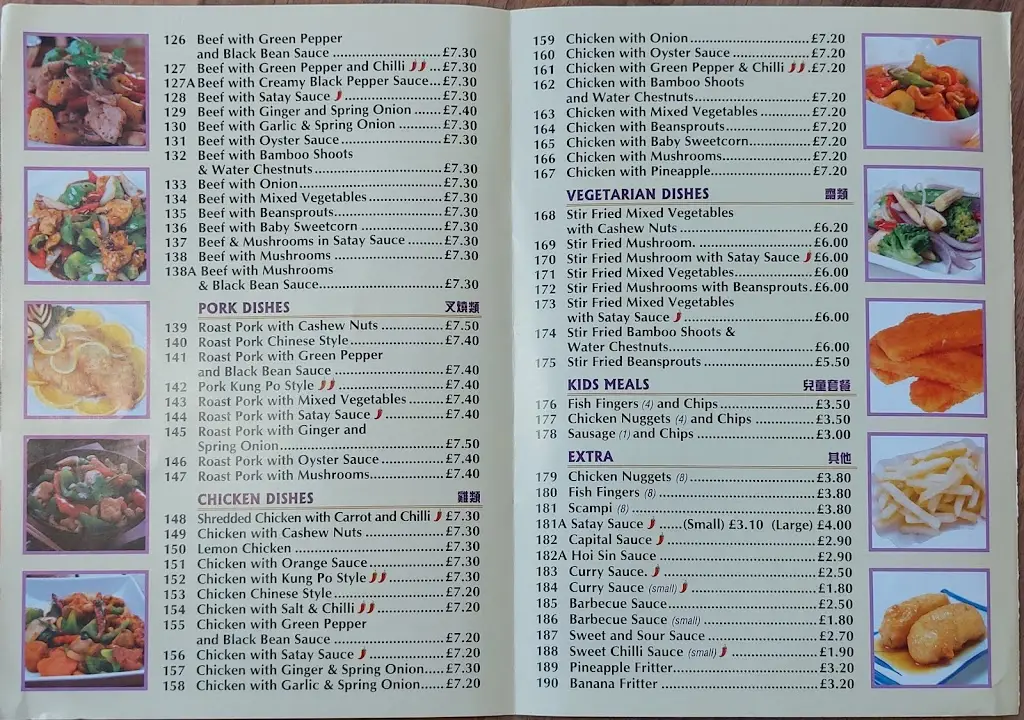 126 Beef with Green Pepper
and Black Bean Sauce ........................£7.30
127 Beef with Green Pepper and Chilli ...£7.30
127A Beef with Creamy Black Pepper Sauce...£7.30
128 Beef with Satay Sauce .....................£7.30
129 Beef with Ginger and Spring Onion .......£7.40
130 Beef with Garlic & Spring Onion ..........£7.30
131 Beef with Oyster Sauce........................£7.30
132 Beef with Bamboo Shoots
& Water Chestnuts.............................£7.30
133 Beef with Onion.................................£7.30
134 Beef with Mixed Vegetables.................£7.30
135 Beef with Beansprouts.........................£7.30
136 Beef with Baby Sweetcorn ...................£7.30
137 Beef & Mushrooms in Satay Sauce ........£7.30
138 Beef with Mushrooms .........................£7.30
138A Beef with Mushrooms
& Black Bean Sauce............................£7.30
PORK DISHES 叉燒類
139 Roast Pork with Cashew Nuts ..............£7.50
140 Roast Pork Chinese Style.....................£7.40
141 Roast Pork with Green Pepper
and Black Bean Sauce ........................£7.40
142 Pork Kung Po Style ........................£7.40
143 Roast Pork with Mixed Vegetables ........£7.40
144 Roast Pork with Satay Sauce ..............£7.40
145 Roast Pork with Ginger and
Spring Onion.....................................£7.50
146 Roast Pork with Oyster Sauce..............£7.40
147 Roast Pork with Mushrooms................£7.40
CHICKEN DISHES 雞類
148 Shredded Chicken with Carrot and Chilli £7.30
149 Chicken with Cashew Nuts .................£7.30
150 Lemon Chicken .................................£7.30
151 Chicken with Orange Sauce.................£7.30
152 Chicken with Kung Po Style .............£7.30
153 Chicken Chinese Style........................£7.20
154 Chicken with Salt & Chilli ...............£7.20
155 Chicken with Green Pepper
and Black Bean Sauce ........................£7.20
156 Chicken with Satay Sauce .................£7.20
157 Chicken with Ginger & Spring Onion.....£7.30
158 Chicken with Garlic & Spring Onion......£7.20
159 Chicken with Onion............................£7.20
160 Chicken with Oyster Sauce ..................£7.20
161 Chicken with Green Pepper & Chilli .£7.20
162 Chicken with Bamboo Shoots
and Water Chestnuts...........................£7.20
163 Chicken with Mixed Vegetables ............£7.20
164 Chicken with Beansprouts....................£7.20
165 Chicken with Baby Sweetcorn...............£7.20
166 Chicken with Mushrooms.....................£7.20
167 Chicken with Pineapple.......................£7.20
VEGETARIAN DISHES 齋類
168 Stir Fried Mixed Vegetables
with Cashew Nuts ..............................£6.20
169 Stir Fried Mushroom. ..........................£6.00
170 Stir Fried Mushroom with Satay Sauce £6.00
171 Stir Fried Mixed Vegetables..................£6.00
172 Stir Fried Mushrooms with Beansprouts.£6.00
173 Stir Fried Mixed Vegetables
with Satay Sauce ............................£6.00
174 Stir Fried Bamboo Shoots &
Water Chestnuts.................................£6.00
175 Stir Fried Beansprouts .........................£5.50
KIDS MEALS 兒童套餐
176 Fish Fingers (4) and Chips.....................£3.50
177 Chicken Nuggets (4) and Chips .............£3.50
178 Sausage (1) and Chips .........................£3.00
EXTRA 其他
179 Chicken Nuggets (8)............................£3.80
180 Fish Fingers (8) ..................................£3.80
181 Scampi (8) .........................................£3.80
181A Satay Sauce .....(Small) £3.10 (Large) £4.00
182 Capital Sauce ..................................£2.90
182A Hoi Sin Sauce ....................................£2.90
183 Curry Sauce. ...................................£2.50
184 Curry Sauce (small) ..........................£1.80
185 Barbecue Sauce..................................£2.50
186 Barbecue Sauce (small) .......................£1.80
187 Sweet and Sour Sauce .........................£2.70
188 Sweet Chilli Sauce (small) .................£1.90
189 Pineapple Fritter.................................£3.20
190 Banana Fritter ...................................£3.20